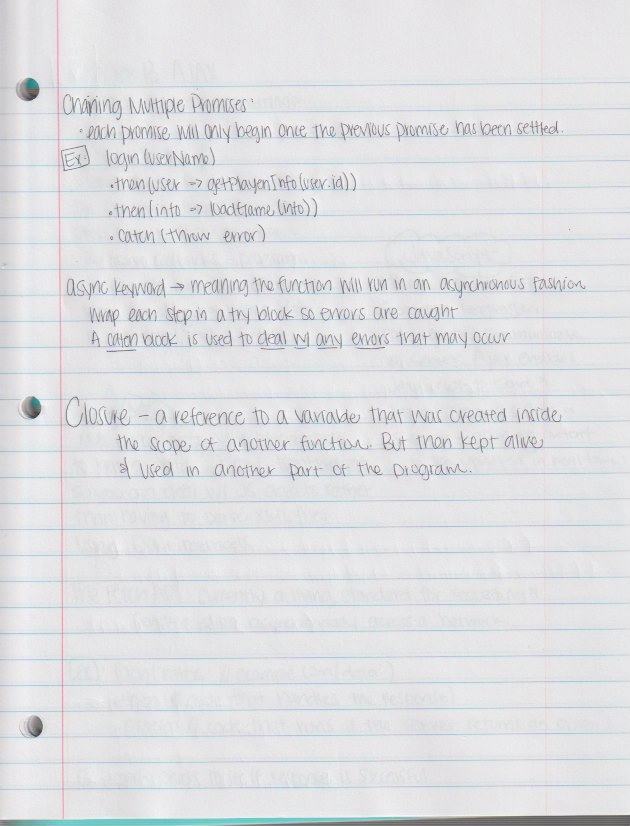 Chaining Multiple Promises:
• each promise will only begin once the previous promise has been settled.
Ex: login(userName)
.then(user -> getPlayerInfo(user.id))
.then(info -> loadGame(info))
.catch(throw error)
async keyword → meaning the function will run in an asynchronous fashion
Wrap each step in a try block so errors are caught
A catch block is used to deal w/ any errors that may occur
Closure - a reference to a variable that was created inside
the scope of another function. But then kept alive
& used in another part of the program.